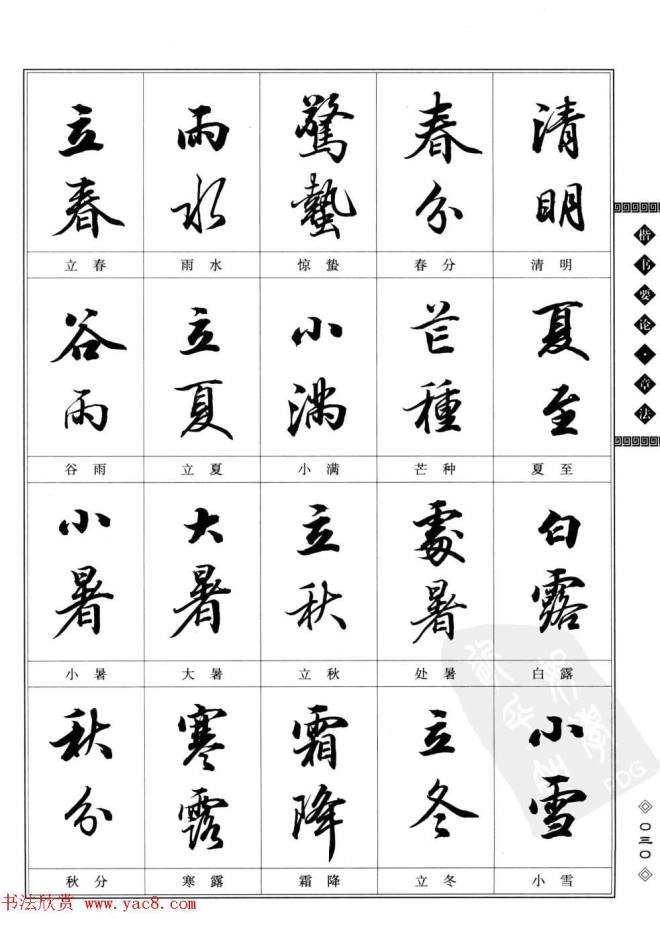 立春
雨水
驚蟄
春分
清明
立春
雨水
惊蛰
春分
清明
谷雨
立夏
小满
芒種
夏至
谷雨
立夏
小满
芒种
夏至
小暑
大暑
立秋
處暑
白露
小暑
大暑
立秋
处暑
白露
秋分
寒露
霜降
立冬
小雪
秋分
寒露
霜降
立冬
小雪
楷书要论·章法
〇三〇
PDG
书法欣赏 www.yac8.com